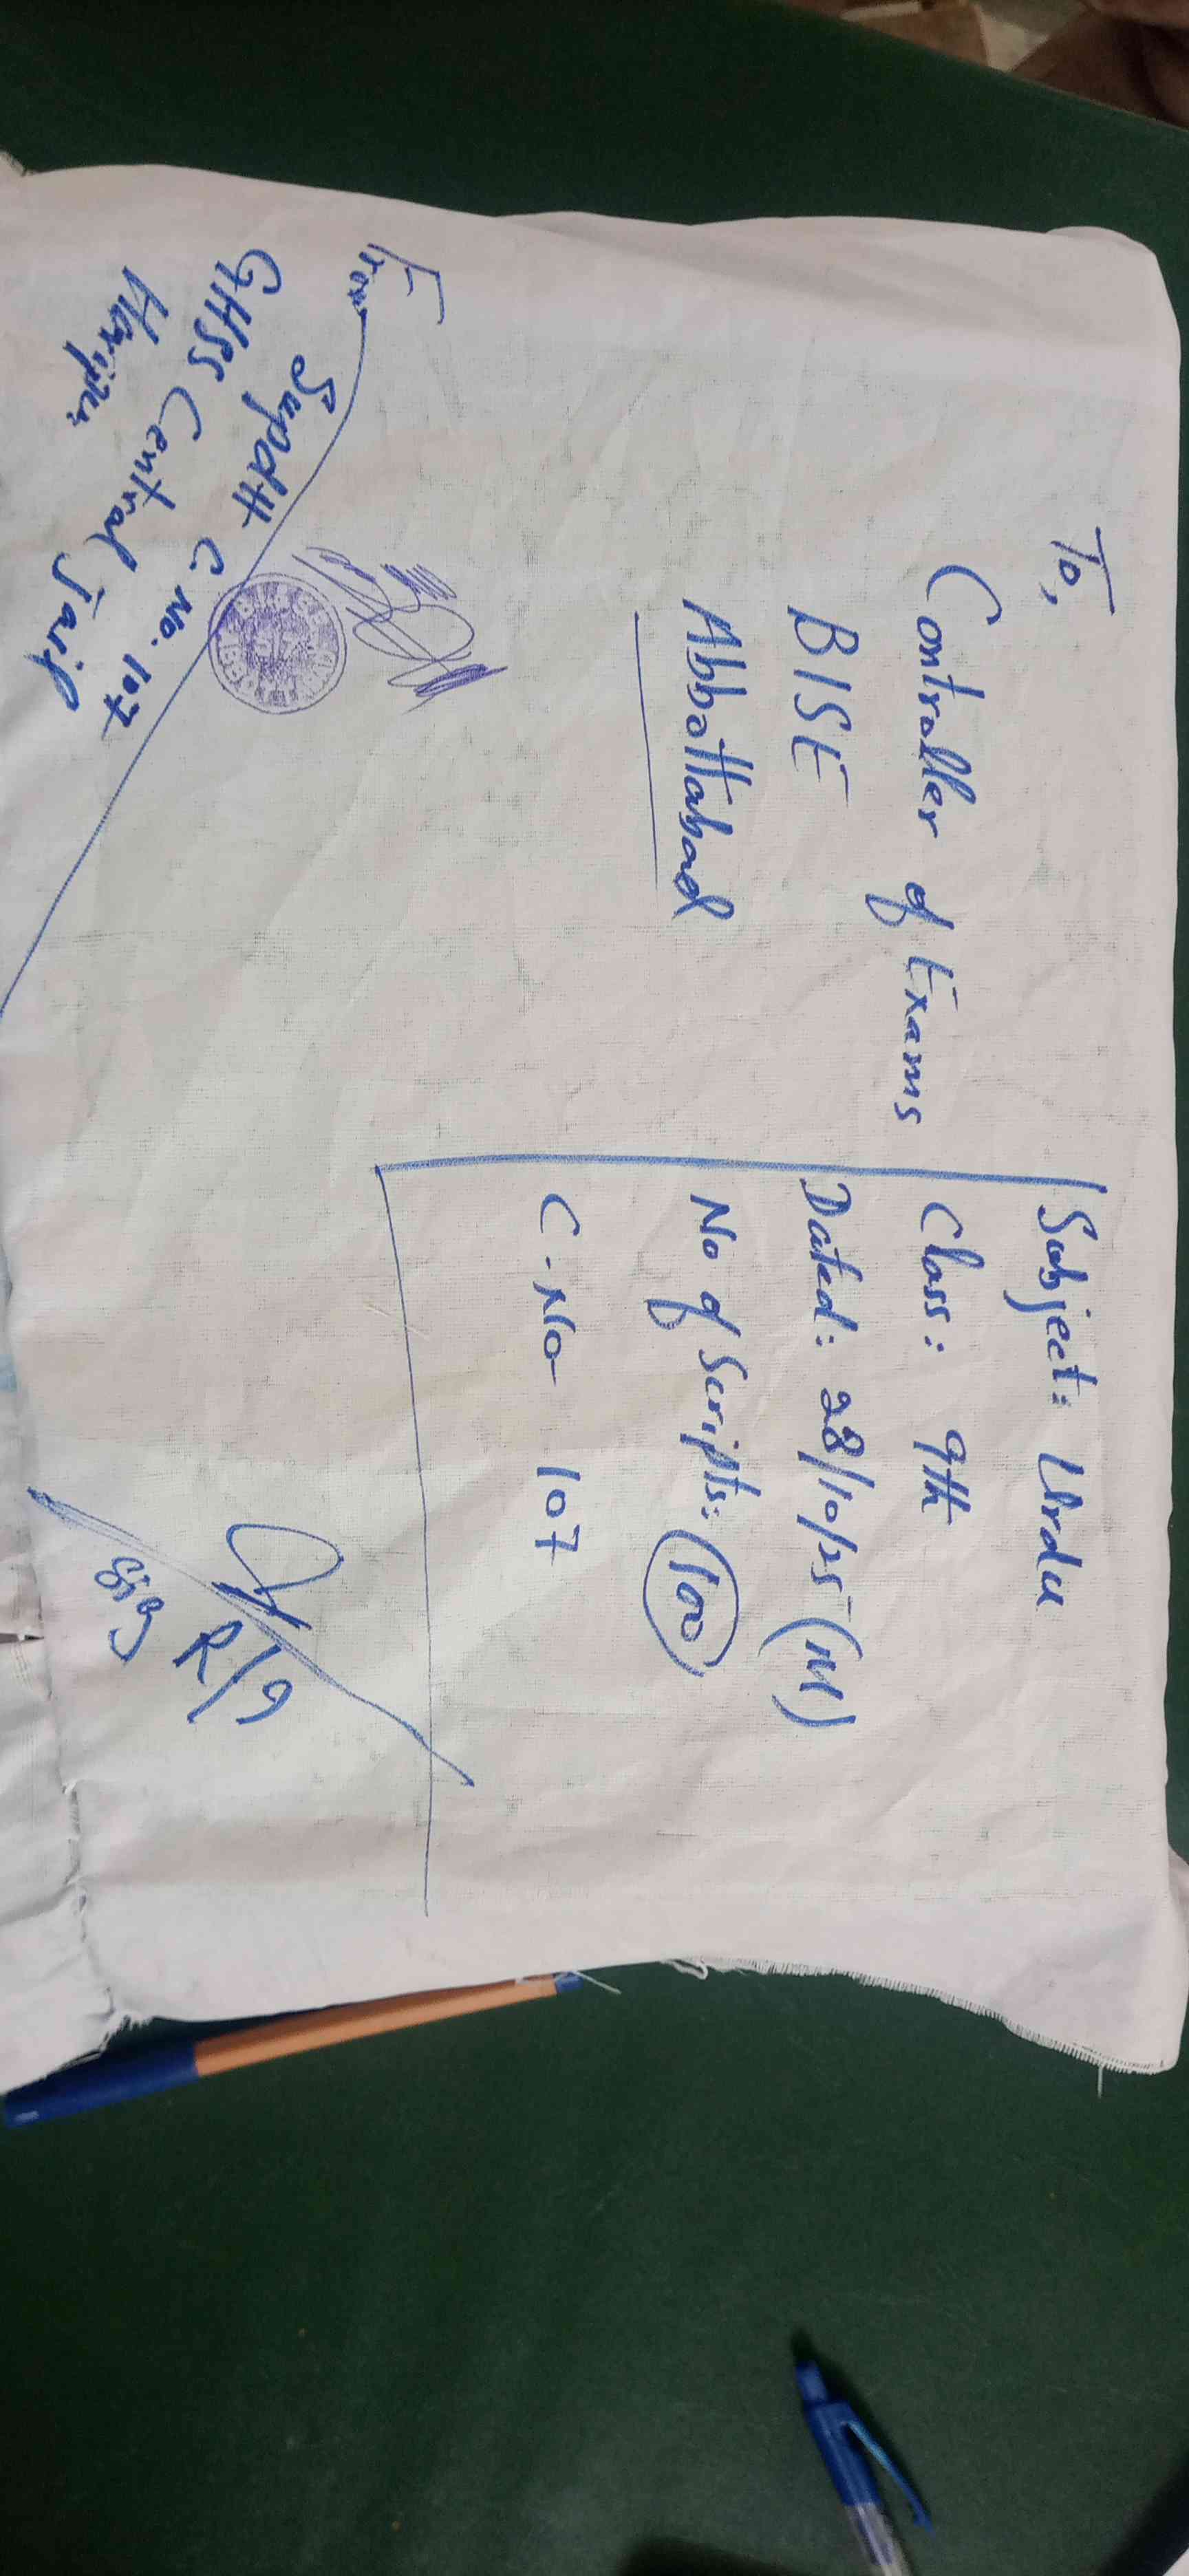 To,
Controller of Exams
BISE
Abbottabad
Subject: Urdu
Class: 9th
Dated: 28/10/25 (M)
No of Scripts: 100
C-No 107
From
Supdtt C No. 107
GHSS Central Jail
Haripur
R/9